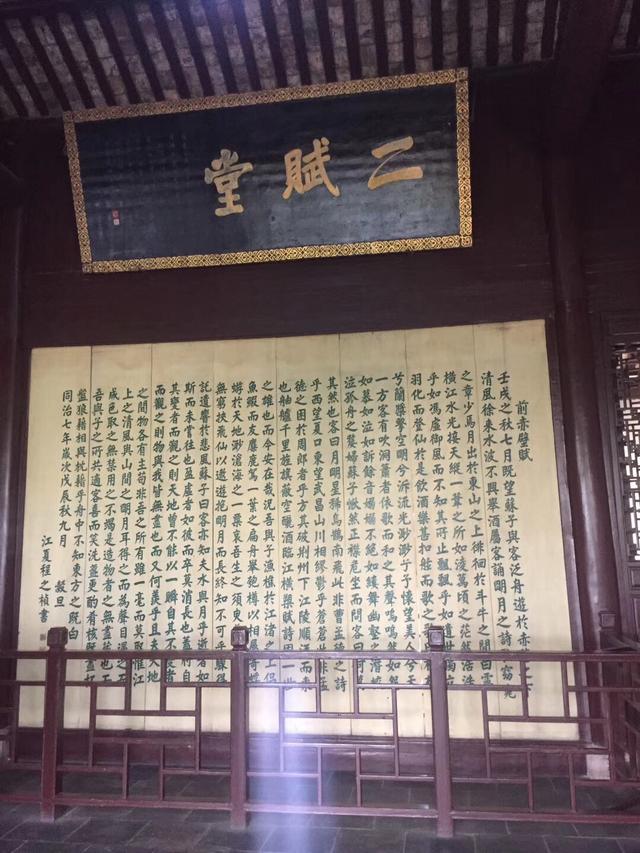 二賦堂
前赤壁賦
壬戌之秋七月既望蘇子與客泛舟遊於赤壁之下
清風徐來水波不興舉酒屬客誦明月之詩歌窈窕
之章少焉月出於東山之上徘徊於斗牛之間白露
橫江水光接天縱一葦之所如淩萬頃之茫然浩浩
乎如馮虛御風而不知其所止飄飄乎如遺世獨立
羽化而登仙於是飲酒樂甚扣舷而歌之歌曰桂棹
兮蘭槳擊空明兮泝流光渺渺兮予懷望美人兮天
一方客有吹洞蕭者倚歌而和之其聲嗚嗚然如怨
如慕如泣如訴餘音嫋嫋不絕如縷舞幽壑之潛蛟
泣孤舟之嫠婦蘇子愀然正襟危坐而問客曰何為
其然也客曰月明星稀烏鵲南飛此非曹孟德之詩
乎西望夏口東望武昌山川相繆鬱乎蒼蒼此非孟
德之困於周郎者乎方其破荊州下江陵順流而東
也舳艫千里旌旗蔽空釃酒臨江橫槊賦詩固一世
之雄也而今安在哉況吾與子漁樵於江渚之上侶
魚鰕而友麋鹿駕一葉之扁舟舉匏樽以相屬寄蜉
蝣於天地渺滄海之一粟哀吾生之須臾羨長江之
無窮挾飛仙以遨遊抱明月而長終知不可乎驟得
託遺響於悲風蘇子曰客亦知夫水與月乎逝者如
斯而未嘗往也盈虛者如彼而卒莫消長也蓋將自
其變者而觀之則天地曾不能以一瞬自其不變者
而觀之則物與我皆無盡也而又何羨乎且夫天地
之間物各有主苟非吾之所有雖一毫而莫取惟江
上之清風與山間之明月耳得之而為聲目遇之而
成色取之無禁用之不竭是造物者之無盡藏也而
吾與子之所共適客喜而笑洗盞更酌肴核既盡杯
盤狼藉相與枕藉乎舟中不知東方之既白
同治七年歲次戊辰秋九月 穀旦
江夏程之楨書